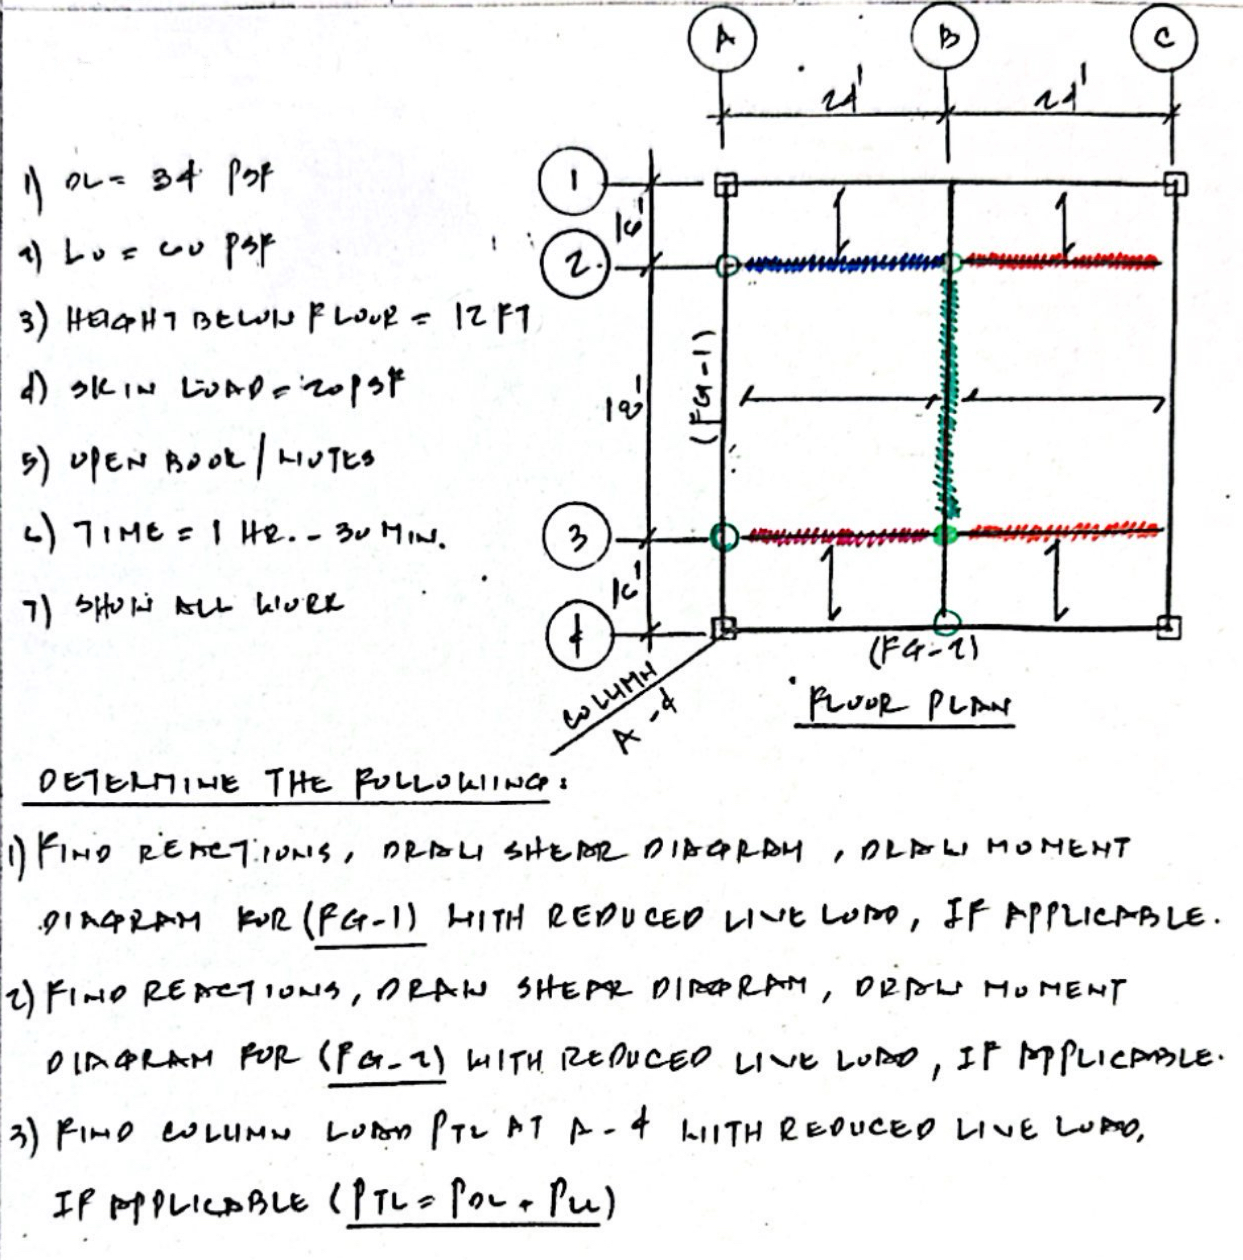 A B C
24' 24'
1) DL = 34 PSF
1
16'
2) Lo = 60 PSF
2.
3) HEIGHT BELOW FLOOR = 12 FT
(FG-1)
4) SKIN LOAD = 20 PSF
18'
5) OPEN BOOK / NOTES
6) TIME = 1 HR. - 30 MIN.
3
7) SHOW ALL WORK
16'
4
(FG-2)
COLUMN
A-4
FLOOR PLAN
DETERMINE THE FOLLOWIING:
1) FIND REACTIONS, DRAW SHEAR DIAGRAM, DRAW MOMENT
DIAGRAM FOR (FG-1) WITH REDUCED LIVE LOAD, IF APPLICABLE.
2) FIND REACTIONS, DRAW SHEAR DIAGRAM, DRAW MOMENT
DIAGRAM FOR (FG-2) WITH REDUCED LIVE LOAD, IF APPLICABLE.
3) FIND COLUMN LOAD PTL AT A-4 WITH REDUCED LIVE LOAD,
IF APPLICABLE (PTL = PDL + PLL)